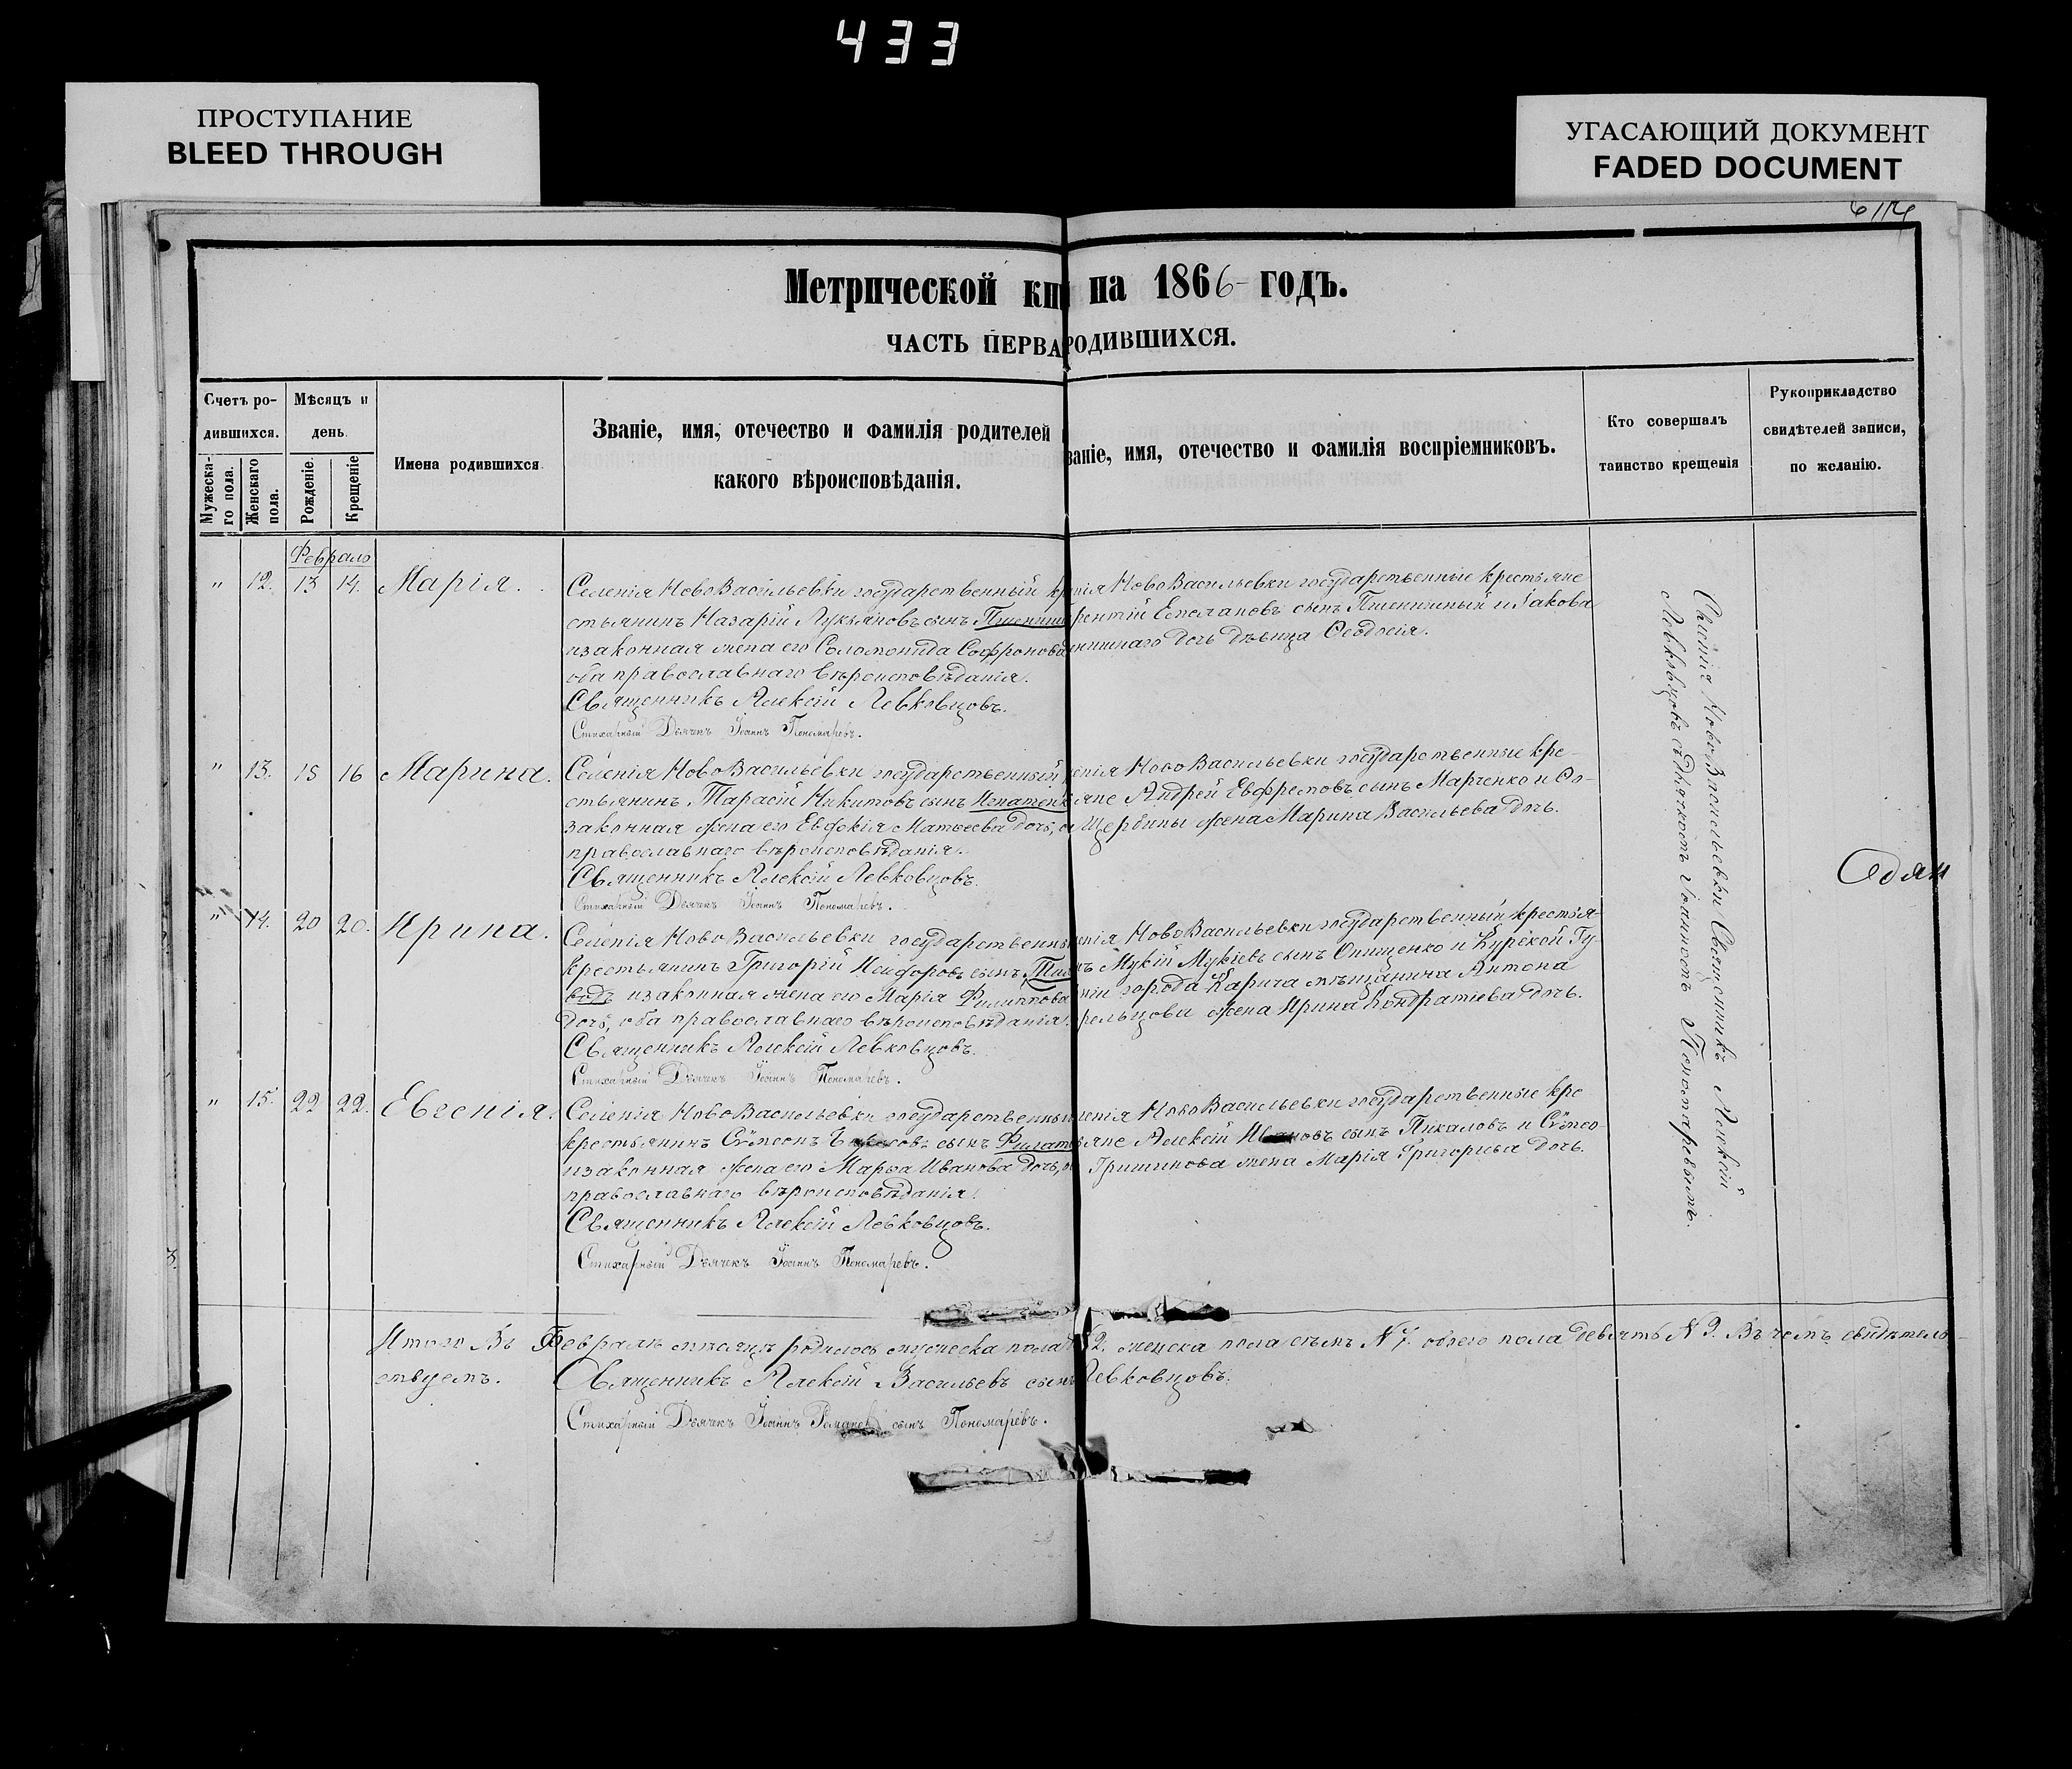 433
ПРОСТУПАНИЕ
BLEED THROUGH
УГАСАЮЩИЙ ДОКУМЕНТ
FADED DOCUMENT
Метрической кни на 1866 годъ.
ЧАСТЬ ПЕРВА РОДИВШИХСЯ.
Счетъ ро-
дившихся.
Мужеска-
го пола.
Женскаго
пола.
Мѣсяцъ и
день.
Рожденіе.
Крещеніе
Имена родившихся
Званіе, имя, отечество и фамилія родителей
какого вѣроисповѣданія.
званіе, имя, отечество и фамилія воспріемниковъ.
Кто совершалъ
таинство крещенія
Рукоприкладство
свидѣтелей записи,
по желанію.
Февраль
" 12. 13 14. Марія.
Селенія НовоВасильевки государственный кре
стьянинъ Назарій Лукьяновъ сынъ Пшеничн
и законная жена его Соломонида Софронова
оба православнаго вѣроисповѣданія.
Священникъ Алексій Левковцовъ.
Стихарный Дьячекъ Іоаннъ Пономаревъ.
енія НовоВасильевки государственные крестьяне
рентій сынъ Пшеничный и Іакова
еничнаго дочь дѣвица Ѳеодосія.
" 13. 15 16 Марина.
Селенія НовоВасильевки государственный
стьянинъ Тарасій Никитовъ сынъ Игнатенк
законная жена его Евфскія Матѳеева дочь, о
православнаго вѣроисповѣданія.
Священникъ Алексій Левковцовъ.
Стихарный Дьячекъ Іоаннъ Пономаревъ.
енія НовоВасильевки государственные кре-
яне Андрей Евфремовъ сынъ Марченко и
Щербины жена Марина Васильева дочь.
" 14. 20 20. Ирина.
Селенія НовоВасильевки государственны
крестьянинъ Григорій сынъ
водъ и законная жена его Марія Филиппова
дочь, оба православнаго вѣроисповѣданія.
Священникъ Алексій Левковцовъ.
Стихарный Дьячекъ Іоаннъ Пономаревъ.
енія НовоВасильевки государственный крестья-
нъ Мукій Мукіевъ сынъ Онищенко и Курской Гу-
ніи города мѣщанина Антона
рельцови жена Ирина Кондратіева дочь.
" 15. 22 22. Евгенія.
Селенія НовоВасильевки государственный
крестьянинъ Сѵмеонъ сынъ Филат
и законная жена его Марѳа Иванова дочь, о
православнаго вѣроисповѣданія.
Священникъ Алексій Левковцовъ.
Стихарный Дьячекъ Іоаннъ Пономаревъ.
енія НовоВасильевки государственные кре
яне Алексій Ивановъ сынъ Пикаловъ и Сѵмео-
Гришинова жена Марія Григорьева дочь.
Селенія НовоВасильевки Священникъ Алексій
Левковцовъ съ дьячкомъ Іоанномъ Пономаревымъ.
Одян
Итого въ Февралѣ мѣсяцѣ родилось мужеска пола 2. женска пола семь N 7. обоего пола девять N 9. Въ чемъ свидѣтель-
ствуемъ. Священникъ Алексій Васильевъ сынъ Левковцовъ.
Стихарный Дьячекъ Іоаннъ Романов сынъ Пономаревъ.